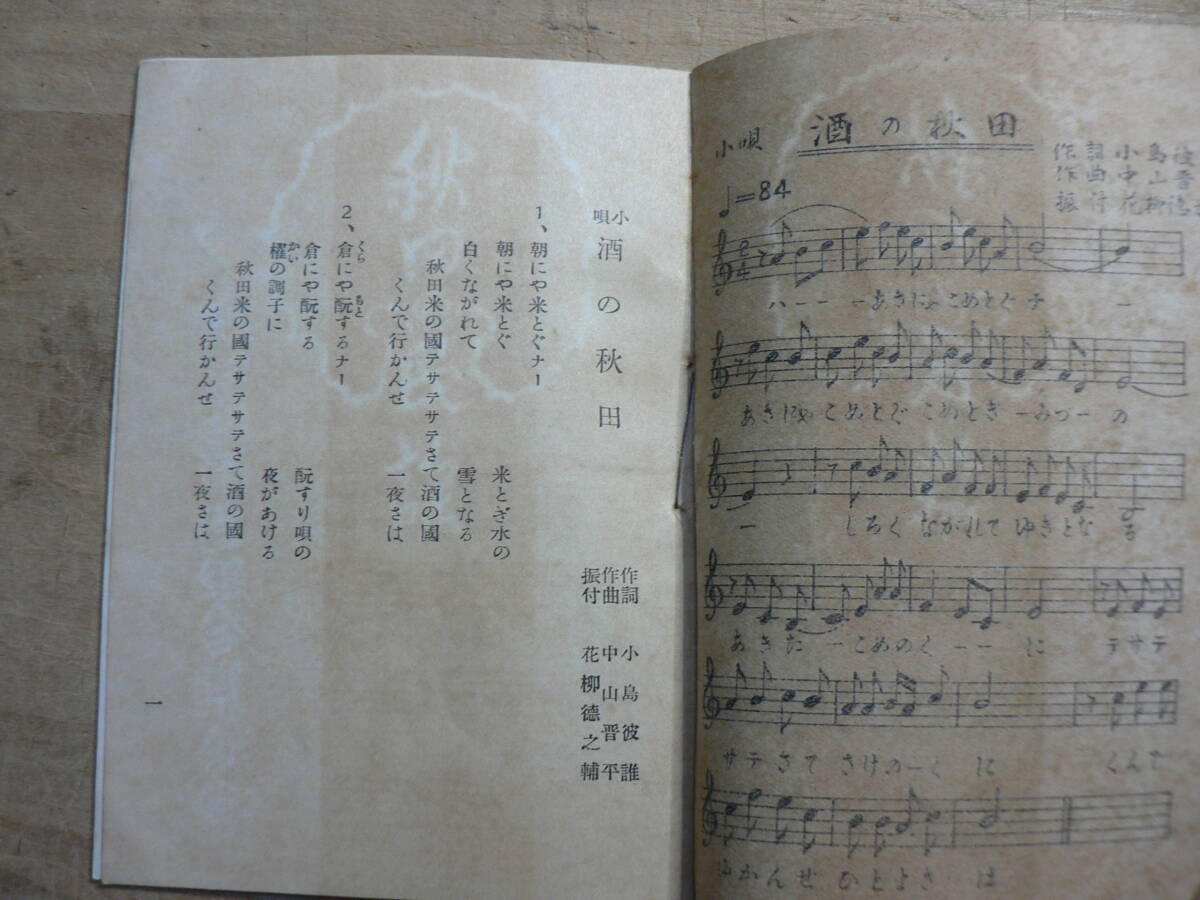 小唄 酒の秋田
作詞 小島彼誰
作曲 中山晋平
振付 花柳德之輔
1、朝にや米とぐナー
朝にや米とぐ 米とぎ水の
白くながれて 雪となる
秋田米の國テサテサテさて酒の國
くんで行かんせ 一夜さは
2、倉にや酛するナー
くら もと
倉にや酛する 酛すり唄の
櫂の調子に 夜があける
かい
秋田米の國テサテサテさて酒の國
くんで行かんせ 一夜さは
一
小唄 酒の秋田
作詞 小島彼
作曲 中山晋
振付 花柳德
♩=84
2/4
ハーーーあさにゃこめとぐナー
あさにゃこめとぐ こめとぎーみづーの
ー しろく ながれて ゆきとなる
あきたーこめのくーーに テサテ
サテさて さけのーくに くんで
ゆかんせ ひとよさ は